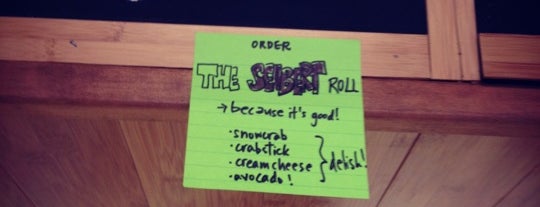 ORDER
THE SEIBERT ROLL
→ because it's good!
· snowcrab
· crabstick
· creamcheese } delish!
· avocado!